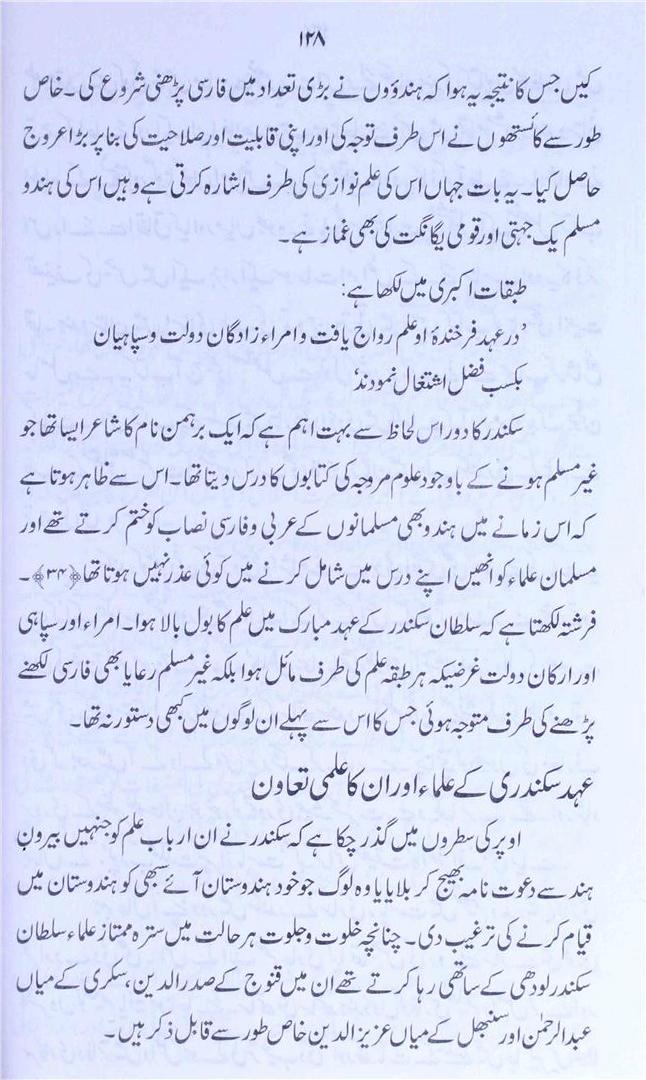 ۱۲۸
کیں جس کا نتیجہ یہ ہوا کہ ہندوؤں نے بڑی تعداد میں فارسی پڑھنی شروع کی۔ خاص
طور سے کائستھوں نے اس طرف توجہ کی اور اپنی قابلیت اور صلاحیت کی بنا پر بڑا عروج
حاصل کیا۔ یہ بات جہاں اس کی علم نوازی کی طرف اشارہ کرتی ہے وہیں اس کی ہندو
مسلم یک جہتی اور قومی یگانگت کی بھی غماز ہے۔
طبقات اکبری میں لکھا ہے:
'در عہد فرخندۂ او علم رواج یافت و امراء زادگان دولت و سپاہیان
بکسب فضل اشتغال نمودند'
سکندر کا دور اس لحاظ سے بہت اہم ہے کہ ایک برہمن نام کا شاعر ایسا تھا جو
غیر مسلم ہونے کے باوجود علوم مروجہ کی کتابوں کا درس دیتا تھا۔ اس سے ظاہر ہوتا ہے
کہ اس زمانے میں ہندو بھی مسلمانوں کے عربی و فارسی نصاب کو ختم کرتے تھے اور
مسلمان علماء کو انھیں اپنے درس میں شامل کرنے میں کوئی عذر نہیں ہوتا تھا﴿۳۴﴾۔
فرشتہ لکھتا ہے کہ سلطان سکندر کے عہد مبارک میں علم کا بول بالا ہوا۔ امراء اور سپاہی
اور ارکان دولت غرضیکہ ہر طبقہ علم کی طرف مائل ہوا بلکہ غیر مسلم رعایا بھی فارسی لکھنے
پڑھنے کی طرف متوجہ ہوئی جس کا اس سے پہلے ان لوگوں میں کبھی دستور نہ تھا۔
عہد سکندری کے علماء اور ان کا علمی تعاون
اوپر کی سطروں میں گذر چکا ہے کہ سکندر نے ان ارباب علم کو جنہیں بیرونِ
ہند سے دعوت نامہ بھیج کر بلایا یا وہ لوگ جو خود ہندوستان آئے سبھی کو ہندوستان میں
قیام کرنے کی ترغیب دی۔ چنانچہ خلوت و جلوت ہر حالت میں سترہ ممتاز علماء سلطان
سکندر لودھی کے ساتھی رہا کرتے تھے ان میں قنوج کے صدر الدین، سکری کے میاں
عبدالرحمٰن اور سنبھل کے میاں عزیز الدین خاص طور سے قابل ذکر ہیں۔